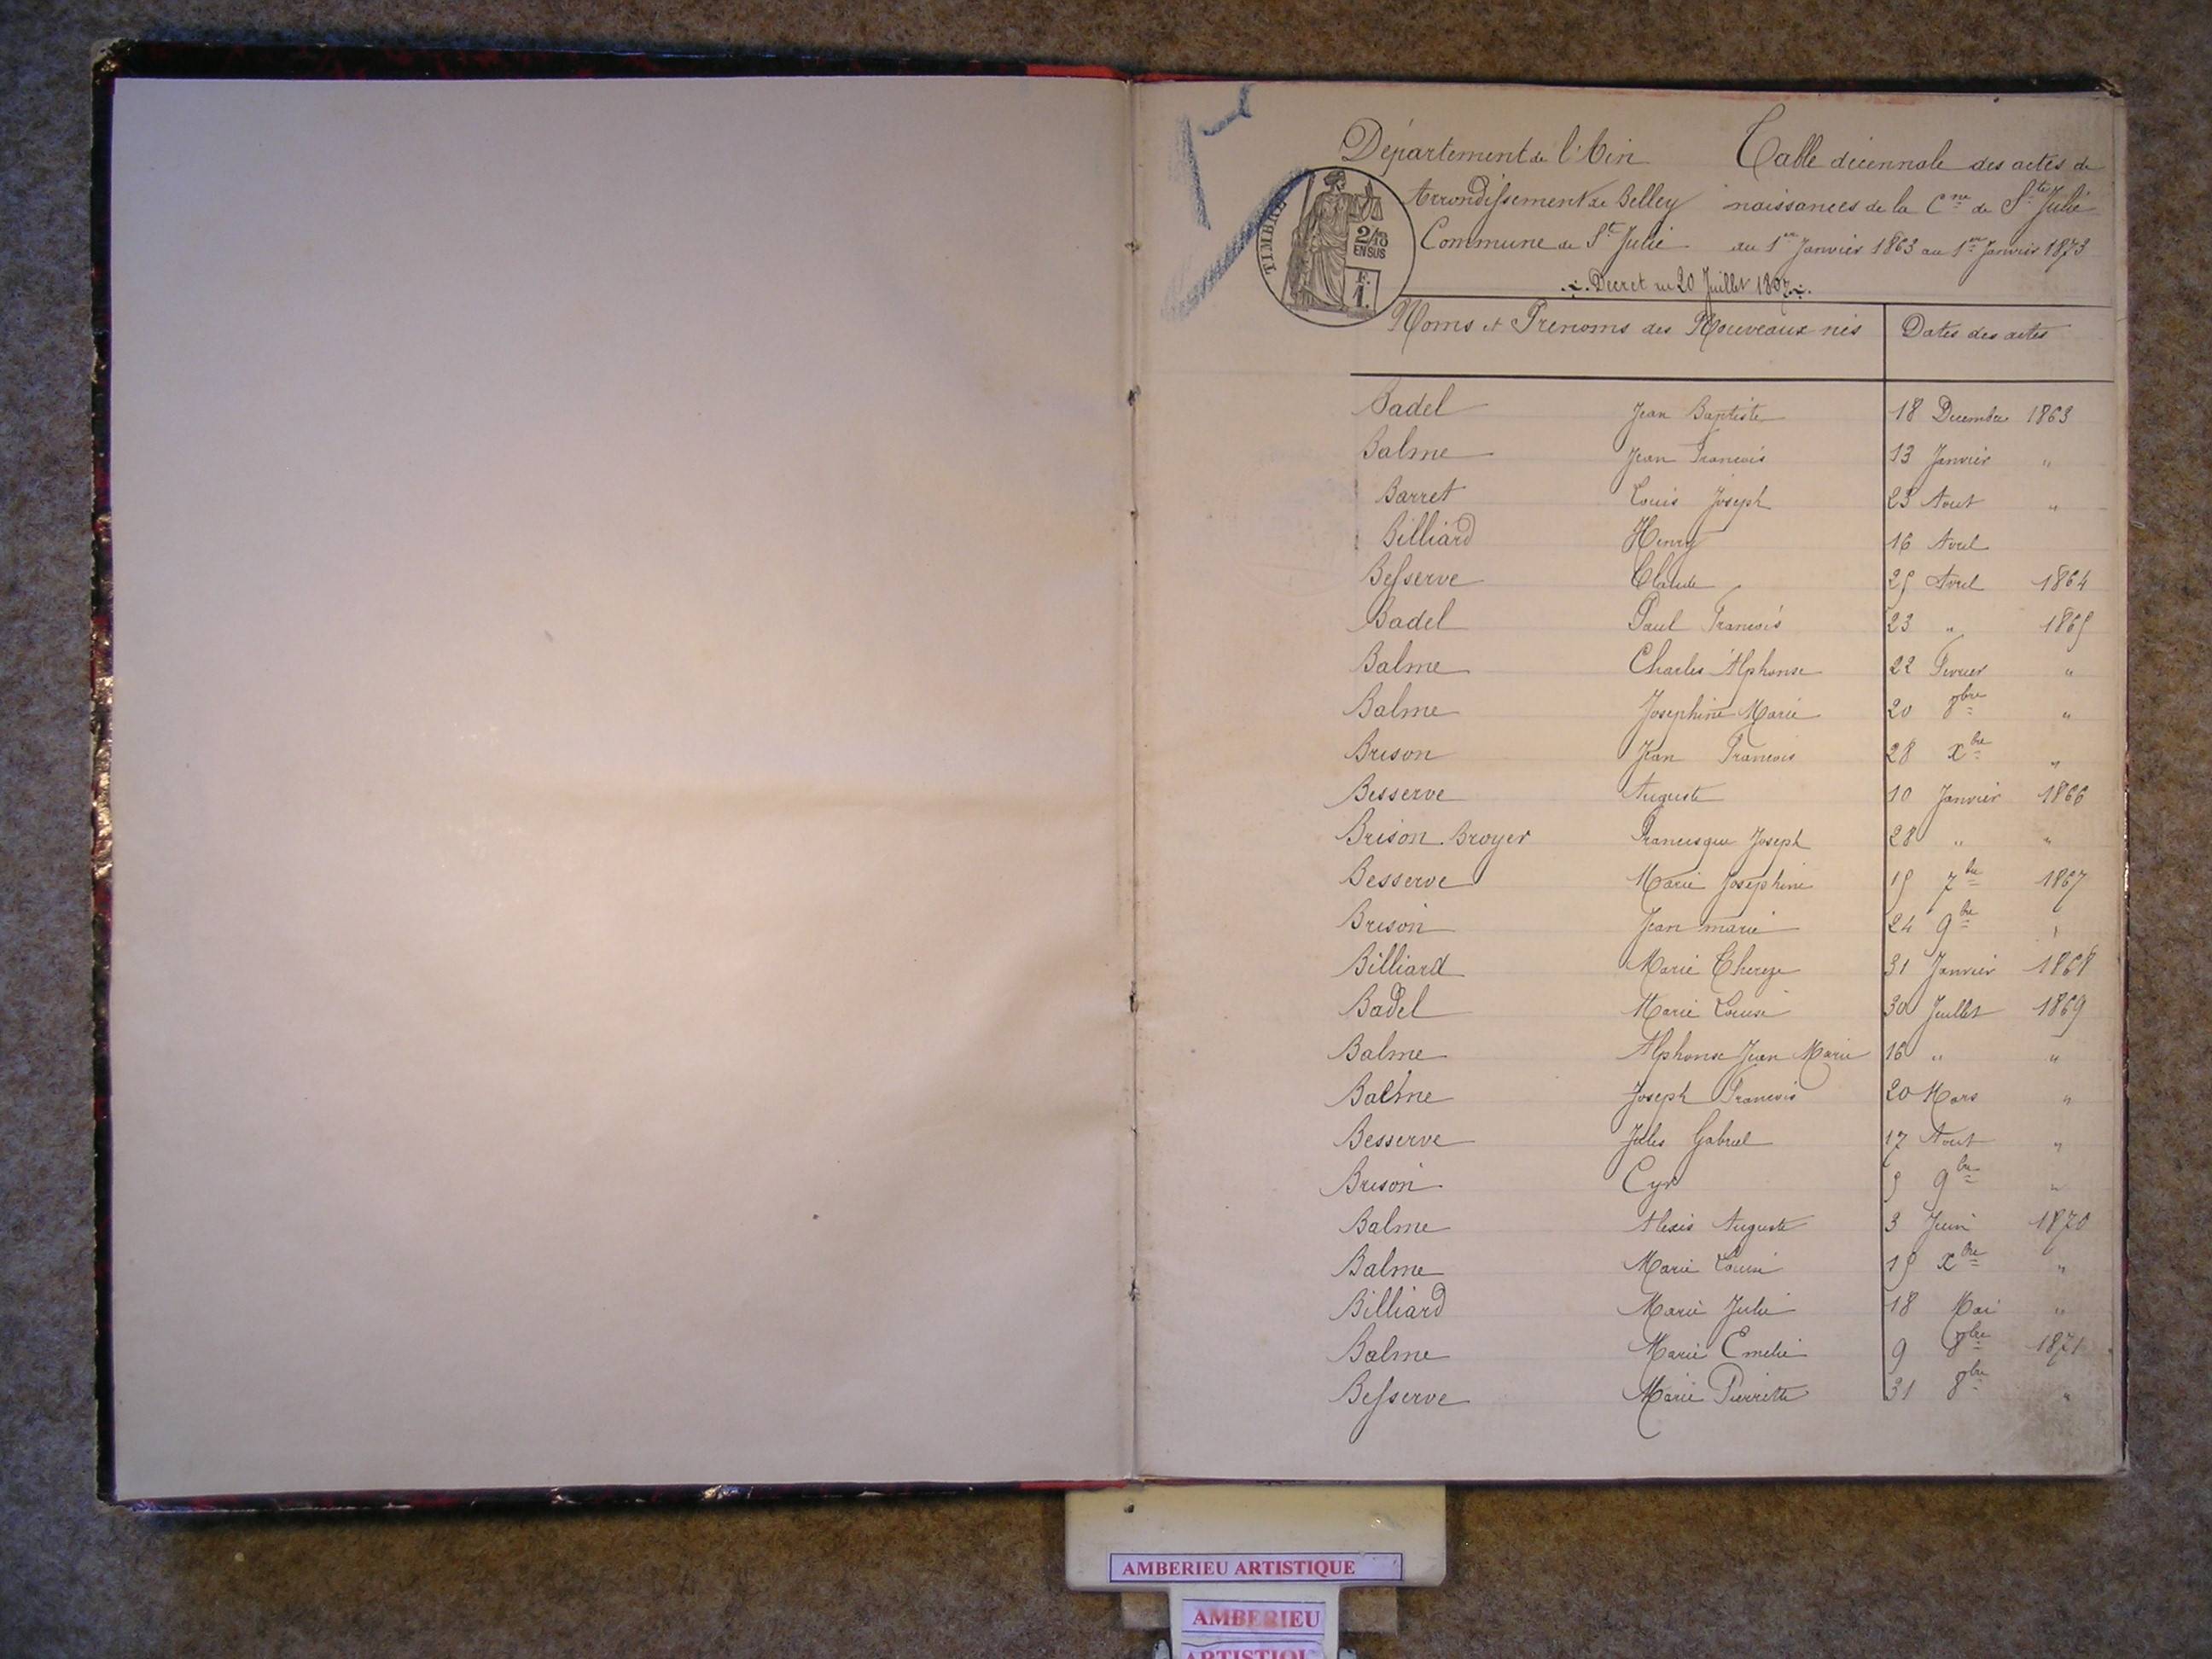 Département de l'Ain Table décennale des actes de
Arrondissement de Belley naissances de la Cne de Ste Julie
Commune de Ste Julie du 1er Janvier 1863 au 1er Janvier 1873
Décret du 20 Juillet 1807
TIMBRE
2/10
EN SUS
F.
1.
Noms et Prénoms des Nouveaux nés Dates des actes
Badel Jean Baptiste 18 Decembre 1863
Balme Jean Francois 13 Janvier "
Barret Louis Joseph 23 Aout "
Billiard Henry 16 Avril
Besserve Claude 25 Avril 1864
Badel Paul Francois 23 " 1865
Balme Charles Alphonse 22 Fevrier "
Balme Josephine Marie 20 8bre "
Brison Jean Francois 28 Xbre "
Besserve Auguste 10 Janvier 1866
Brison Broyer Francisque Joseph 28 " "
Besserve Marie Josephine 15 7bre 1867
Brison Jean marie 24 9bre "
Billiard Marie Thereze 31 Janvier 1868
Badel Marie Louise 30 Juillet 1869
Balme Alphonse Jean Marie 16 " "
Balme Joseph Francois 20 Mars "
Besserve Jules Gabriel 17 Aout "
Brison Cyr 5 9bre "
Balme Alexis Auguste 3 Juin 1870
Balme Marie Louise 15 Xbre "
Billiard Marie Julie 18 Mai "
Balme Marie Emelie 9 8bre 1871
Besserve Marie Pierrette 31 8bre "
AMBERIEU ARTISTIQUE
AMBERIEU
ARTISTIQU